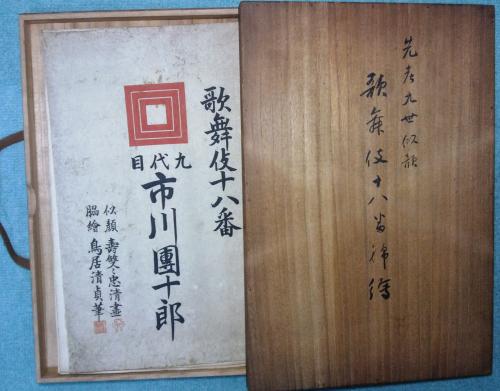 先考九世似顔
歌舞伎十八番錦繪
歌舞伎十八番
九代目
市川團十郎
似顔 忠清畫
脇繪 鳥居清貞筆